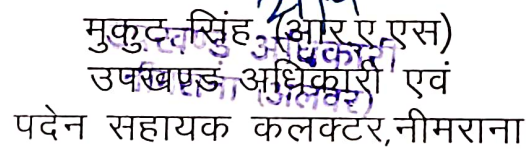 मुकुट सिंह (आर.ए.एस)
उपखण्ड अधिकारी एवं
पदेन सहायक कलक्टर,नीमराना